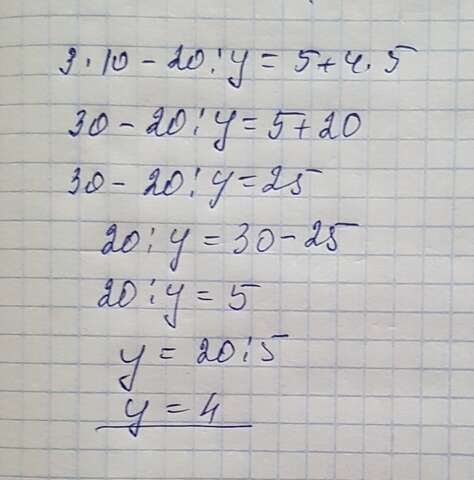 3·10 - 20:y = 5+4·5
30 - 20:y = 5+20
30 - 20:y = 25
20:y = 30-25
20:y = 5
y = 20:5
y = 4